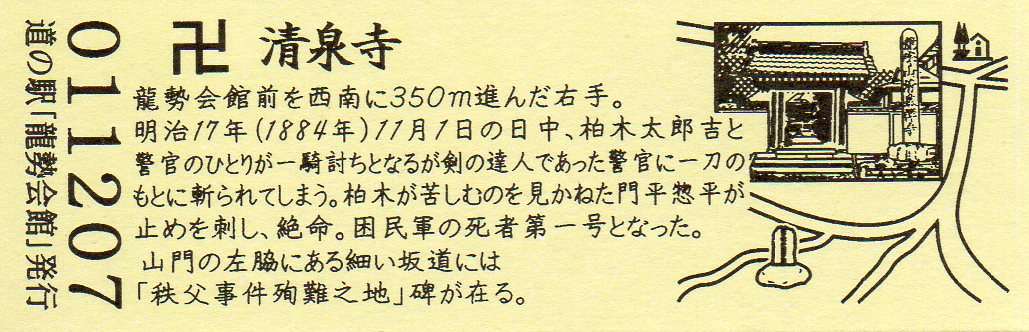 卍 清泉寺
龍勢会館前を西南に350m進んだ右手。
明治17年(1884年)11月1日の日中、柏木太郎吉と
警官のひとりが一騎討ちとなるが剣の達人であった警官に一刀の
もとに斬られてしまう。柏木が苦しむのを見かねた門平惣平が
止めを刺し、絶命。困民軍の死者第一号となった。
山門の左脇にある細い坂道には
「秩父事件殉難之地」碑が在る。
011207
道の駅「龍勢会館」発行